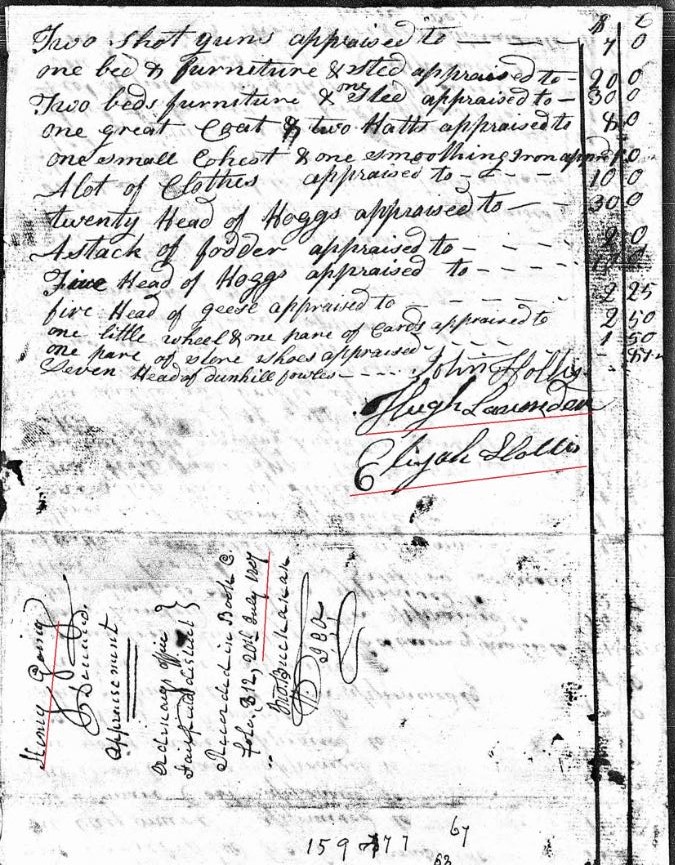 $ C
Two Shot guns appraised to — — — 7 0
one bed & furniture & sted appraised to – 20 0
Two beds furniture & one sted appraised to – 30 0
one great Coat & two Hatts appraised to 8 0
one small Chest & one smoothing Iron 0
A lot of Clothes appraised to - - - 10 0
twenty Head of Hoggs appraised to — - 30 0
A stack of fodder appraised to - - - 0
Five Head of Hoggs appraised to - - - -
five Head of geese appraised to - - - - 2 25
one little wheel & one pare of Cards appraised to 2 50
one pare of shoes appraised - - - - 1 50
Seven Head of dunhill fowles - - - -
John Hollis
Hugh
Elijah Hollis
Henry Going
Deceased
Appraisement
Ordinarys office
Fairfield district }
Recorded in Book C.
Folio 312, 20th July 1807
Jno. Buckanan
159 77
67
62